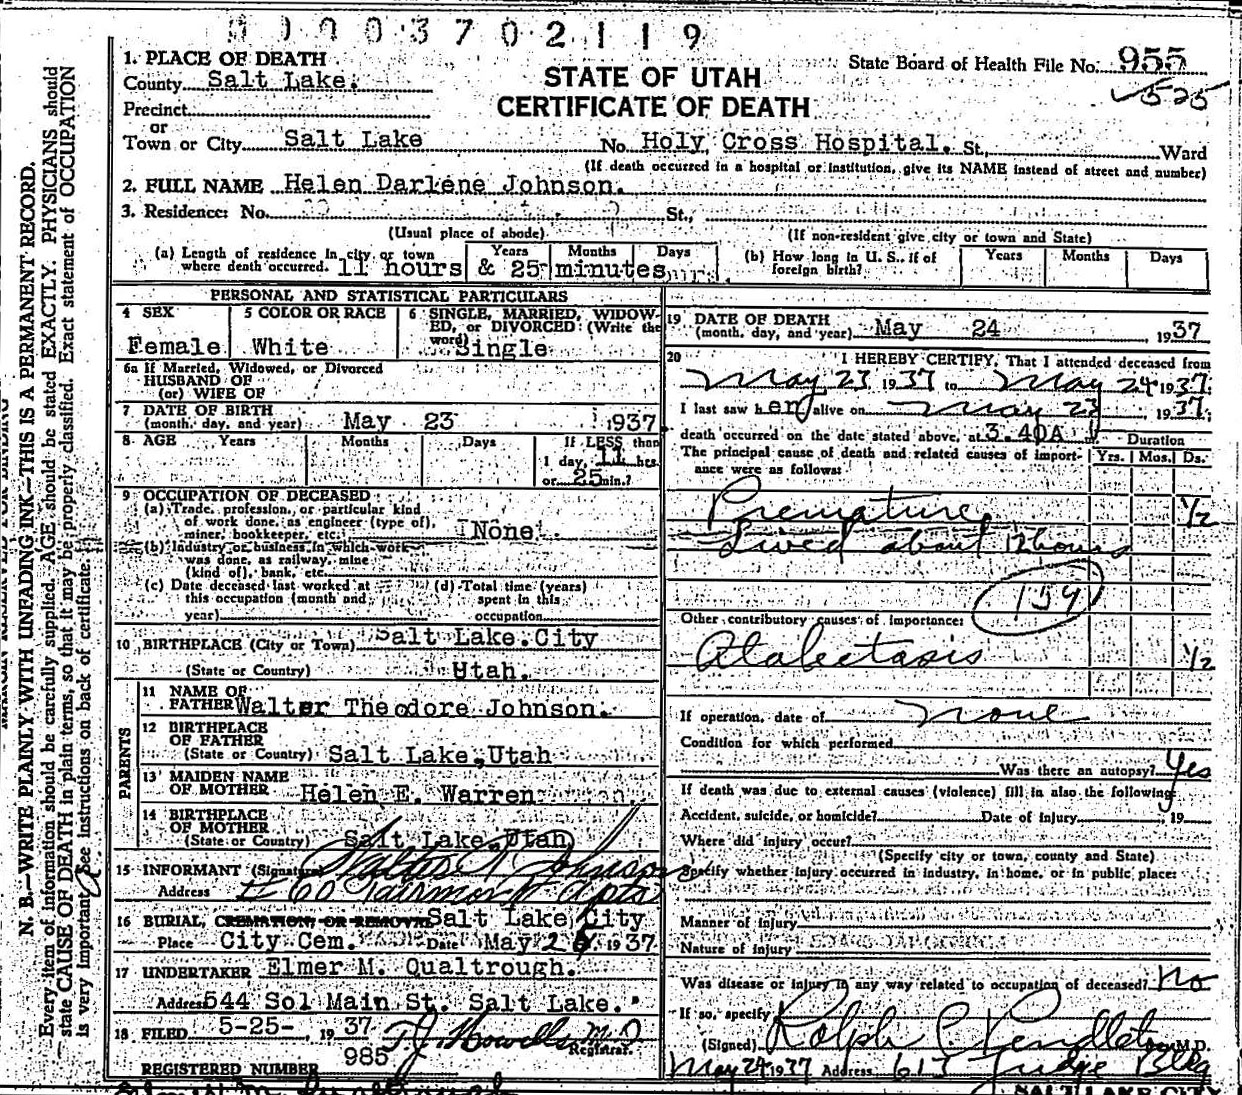 0003702119
1. PLACE OF DEATH
County Salt Lake.
State Board of Health File No. 955
525
STATE OF UTAH
CERTIFICATE OF DEATH
Precinct
or
Town or City Salt Lake No. Holy Cross Hospital. St., Ward
(If death occurred in a hospital or institution, give its NAME instead of street and number)
2. FULL NAME Helen Darlene Johnson.
3. Residence: No. St.,
(Usual place of abode) (If non-resident give city or town and State)
(a) Length of residence in city or town where death occurred. 11 hours & 25 minutes
Years Months Days
(b) How long in U. S., if of foreign birth? Years Months Days
PERSONAL AND STATISTICAL PARTICULARS
4 SEX Female
5 COLOR OR RACE White
6 SINGLE, MARRIED, WIDOWED, or DIVORCED: (Write the word) Single
6a If Married, Widowed, or Divorced
HUSBAND OF
(or) WIFE OF
7 DATE OF BIRTH
(month, day, and year) May 23 1937
8 AGE Years Months Days If LESS than
1 day, 11 hrs.
or 25 min.?
9 OCCUPATION OF DECEASED
(a) Trade, profession, or particular kind
of work done, as engineer (type of),
miner, bookkeeper, etc. None.
(b) Industry or business in which work
was done, as railway, mine
(kind of), bank, etc.
(c) Date deceased last worked at
this occupation (month and
year)
(d) Total time (years)
spent in this
occupation
10 BIRTHPLACE (City or Town) Salt Lake City
(State or Country) Utah.
PARENTS
11 NAME OF
FATHER Walter Theodore Johnson.
12 BIRTHPLACE
OF FATHER
(State or Country) Salt Lake, Utah
13 MAIDEN NAME
OF MOTHER Helen E. Warren
14 BIRTHPLACE
OF MOTHER
(State or Country) Salt Lake, Utah
15 INFORMANT (Signature) Walter T Johnson
Address # 60 Fairmont Apts
16 BURIAL, CREMATION, OR REMOVAL Salt Lake City
Place City Cem. Date May 26 1937
17 UNDERTAKER Elmer M. Qualtrough.
Address 544 So. Main St. Salt Lake.
18 FILED 5-25-, 1937 T J Howells M.D.
Registrar.
985
REGISTERED NUMBER
19 DATE OF DEATH
(month, day, and year) May 24, 1937
20 I HEREBY CERTIFY, That I attended deceased from
May 23 1937 to May 24 1937;
I last saw her alive on May 23, 1937;
death occurred on the date stated above, at 3.40A m.
Duration
The principal cause of death and related causes of importance were as follows: Yrs. Mos. Ds.
Premature 1/2
Lived about 12 hours
159
Other contributory causes of importance:
Atalectasis 1/2
If operation, date of none
Condition for which performed
Was there an autopsy? Yes
If death was due to external causes (violence) fill in also the following:
Accident, suicide, or homicide? Date of injury, 19
Where did injury occur?
(Specify city or town, county and State)
Specify whether injury occurred in industry, in home, or in public place:
Manner of injury
Nature of injury
Was disease or injury in any way related to occupation of deceased? No
If so, specify
(Signed) Ralph C Pendleton M.D.
May 24 1937 Address 613 Judge Bldg
SALT LAKE CITY
N. B.—WRITE PLAINLY WITH UNFADING INK—THIS IS A PERMANENT RECORD.
Every item of information should be carefully supplied. AGE should be stated EXACTLY. PHYSICIANS should
state CAUSE OF DEATH in plain terms, so that it may be properly classified. Exact statement of OCCUPATION
is very important. See instructions on back of certificate.